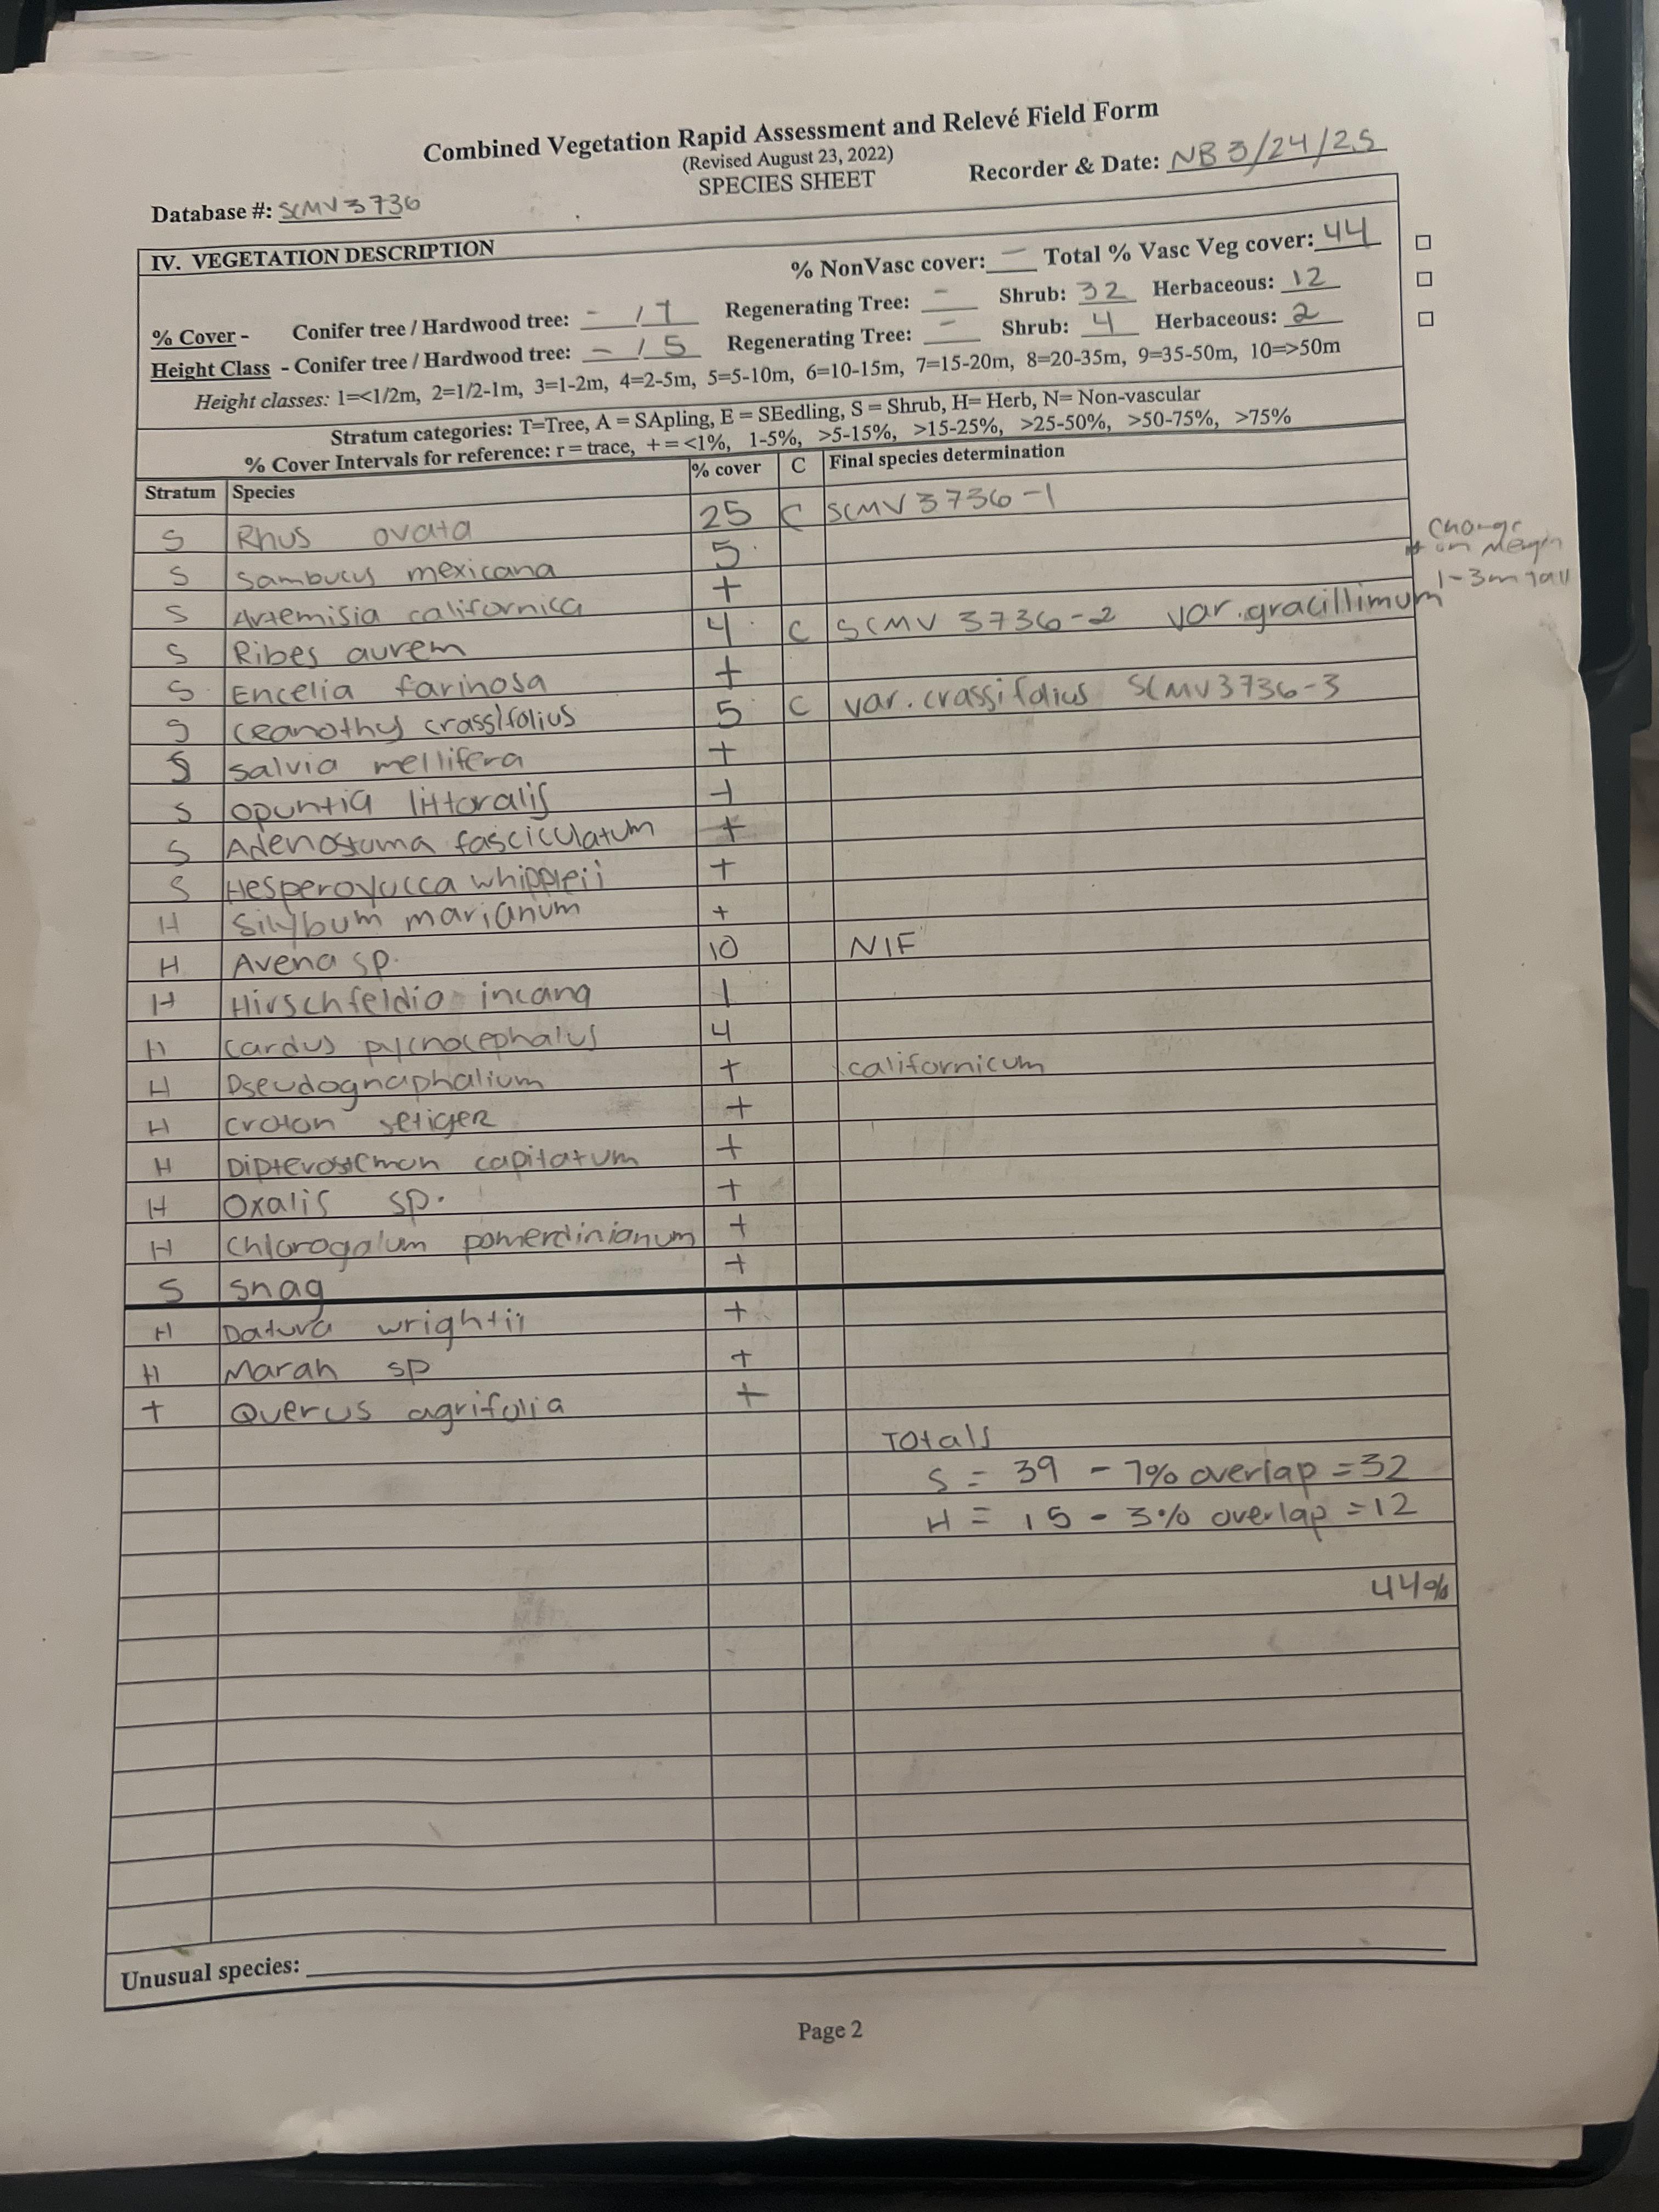 Combined Vegetation Rapid Assessment and Relevé Field Form
(Revised August 23, 2022)
SPECIES SHEET
Recorder & Date: NB 3/24/25
Database #: SCMV3736
IV. VEGETATION DESCRIPTION
% NonVasc cover: — Total % Vasc Veg cover: 44
% Cover - Conifer tree / Hardwood tree: - / + Regenerating Tree: - Shrub: 32 Herbaceous: 12
Height Class - Conifer tree / Hardwood tree: - / 5 Regenerating Tree: - Shrub: 4 Herbaceous: 2
Height classes: 1=<1/2m, 2=1/2-1m, 3=1-2m, 4=2-5m, 5=5-10m, 6=10-15m, 7=15-20m, 8=20-35m, 9=35-50m, 10=>50m
Stratum categories: T=Tree, A = SApling, E = SEedling, S = Shrub, H= Herb, N= Non-vascular
% Cover Intervals for reference: r = trace, + = <1%, 1-5%, >5-15%, >15-25%, >25-50%, >50-75%, >75%
Stratum Species % cover C Final species determination
S Rhus ovata 25 C SCMV3736-1
S Sambucus mexicana 5
S Artemisia californica +
change
on Margin
1-3m tall
S Ribes aurem 4 C SCMV 3736-2 var. gracillimum
S Encelia farinosa +
S Ceanothus crassifolius 5 C var. crassifolius SCMV3736-3
S Salvia mellifera +
S Opuntia littoralis +
S Adenostoma fasciculatum +
S Hesperoyucca whippleii +
H Silybum marianum +
H Avena sp. 10 NIF
H Hirschfeldia incana 1
H Cardus pycnocephalus 4
H Pseudognaphalium + californicum
H Croton setiger +
H Dipterostemon capitatum +
H Oxalis sp. +
H Chlorogalum pomerdinianum +
S Snag +
H Datura wrightii +
H Marah sp +
T Querus agrifolia +
Totals
S = 39 - 7% overlap = 32
H = 15 - 3% overlap = 12
44%
Unusual species:
Page 2